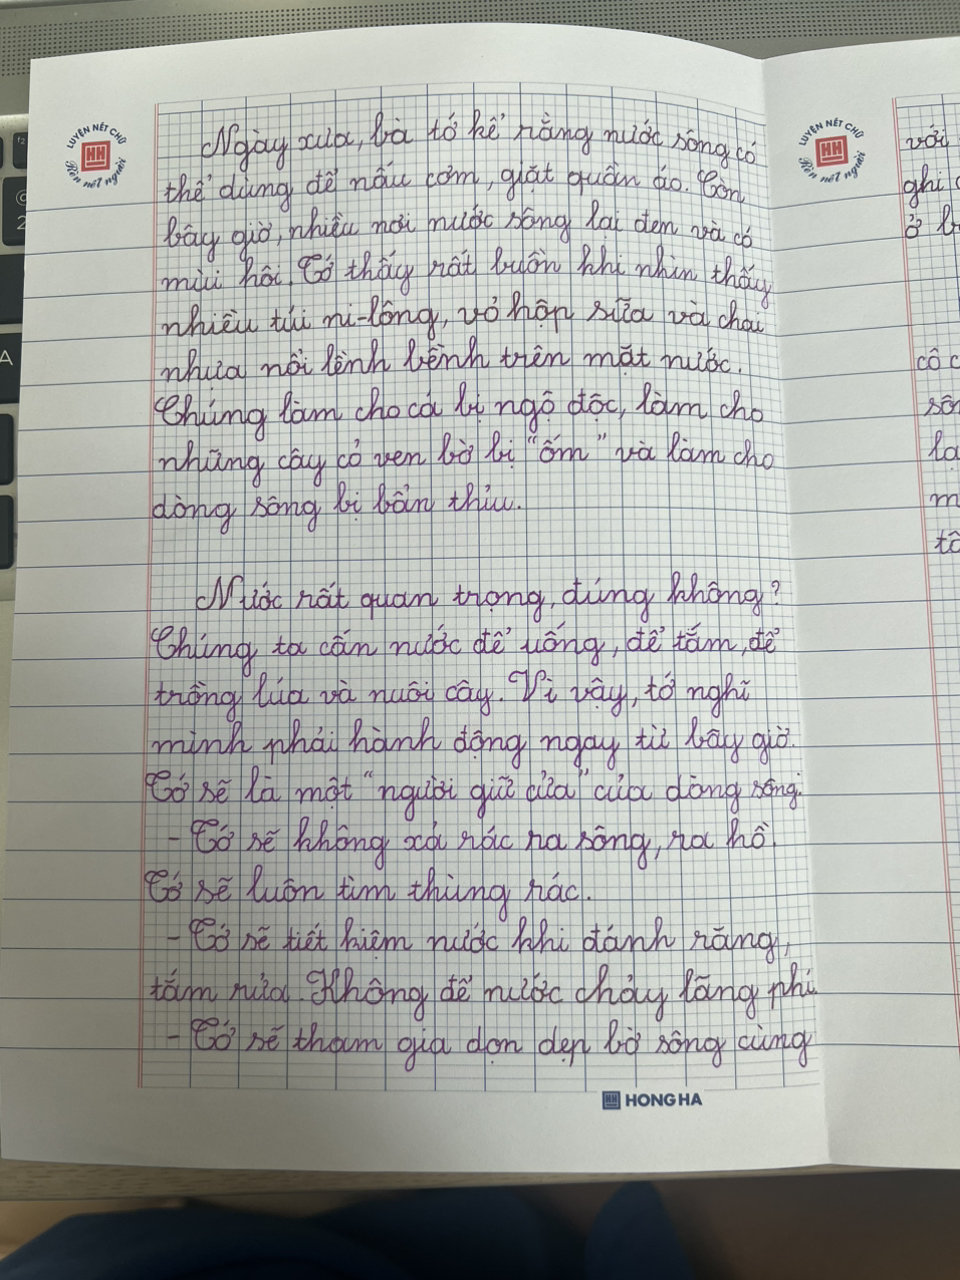 LUYỆN NẾT CHỮ
HH
Rèn nết người
Ngày xưa, bà tớ kể rằng nước sông có
thể dùng để nấu cơm, giặt quần áo. Còn
bây giờ, nhiều nơi nước sông lại đen và có
mùi hôi. Tớ thấy rất buồn khi nhìn thấy
nhiều túi ni-lông, vỏ hộp sữa và chai
nhựa nổi lềnh bềnh trên mặt nước.
Chúng làm cho cá bị ngộ độc, làm cho
những cây cỏ ven bờ bị "ốm" và làm cho
dòng sông bị bẩn thỉu.
Nước rất quan trọng, đúng không?
Chúng ta cần nước để uống, để tắm, để
trồng lúa và nuôi cây. Vì vậy, tớ nghĩ
mình phải hành động ngay từ bây giờ.
Tớ sẽ là một "người giữ cửa" của dòng sông.
- Tớ sẽ không xả rác ra sông, ra hồ.
Tớ sẽ luôn tìm thùng rác.
- Tớ sẽ tiết kiệm nước khi đánh răng,
tắm rửa. Không để nước chảy lãng phí.
- Tớ sẽ tham gia dọn dẹp bờ sông cùng
HH HONG HA
LUYỆN NẾT CHỮ
HH
Rèn nết người
với
ghi
ở
cô